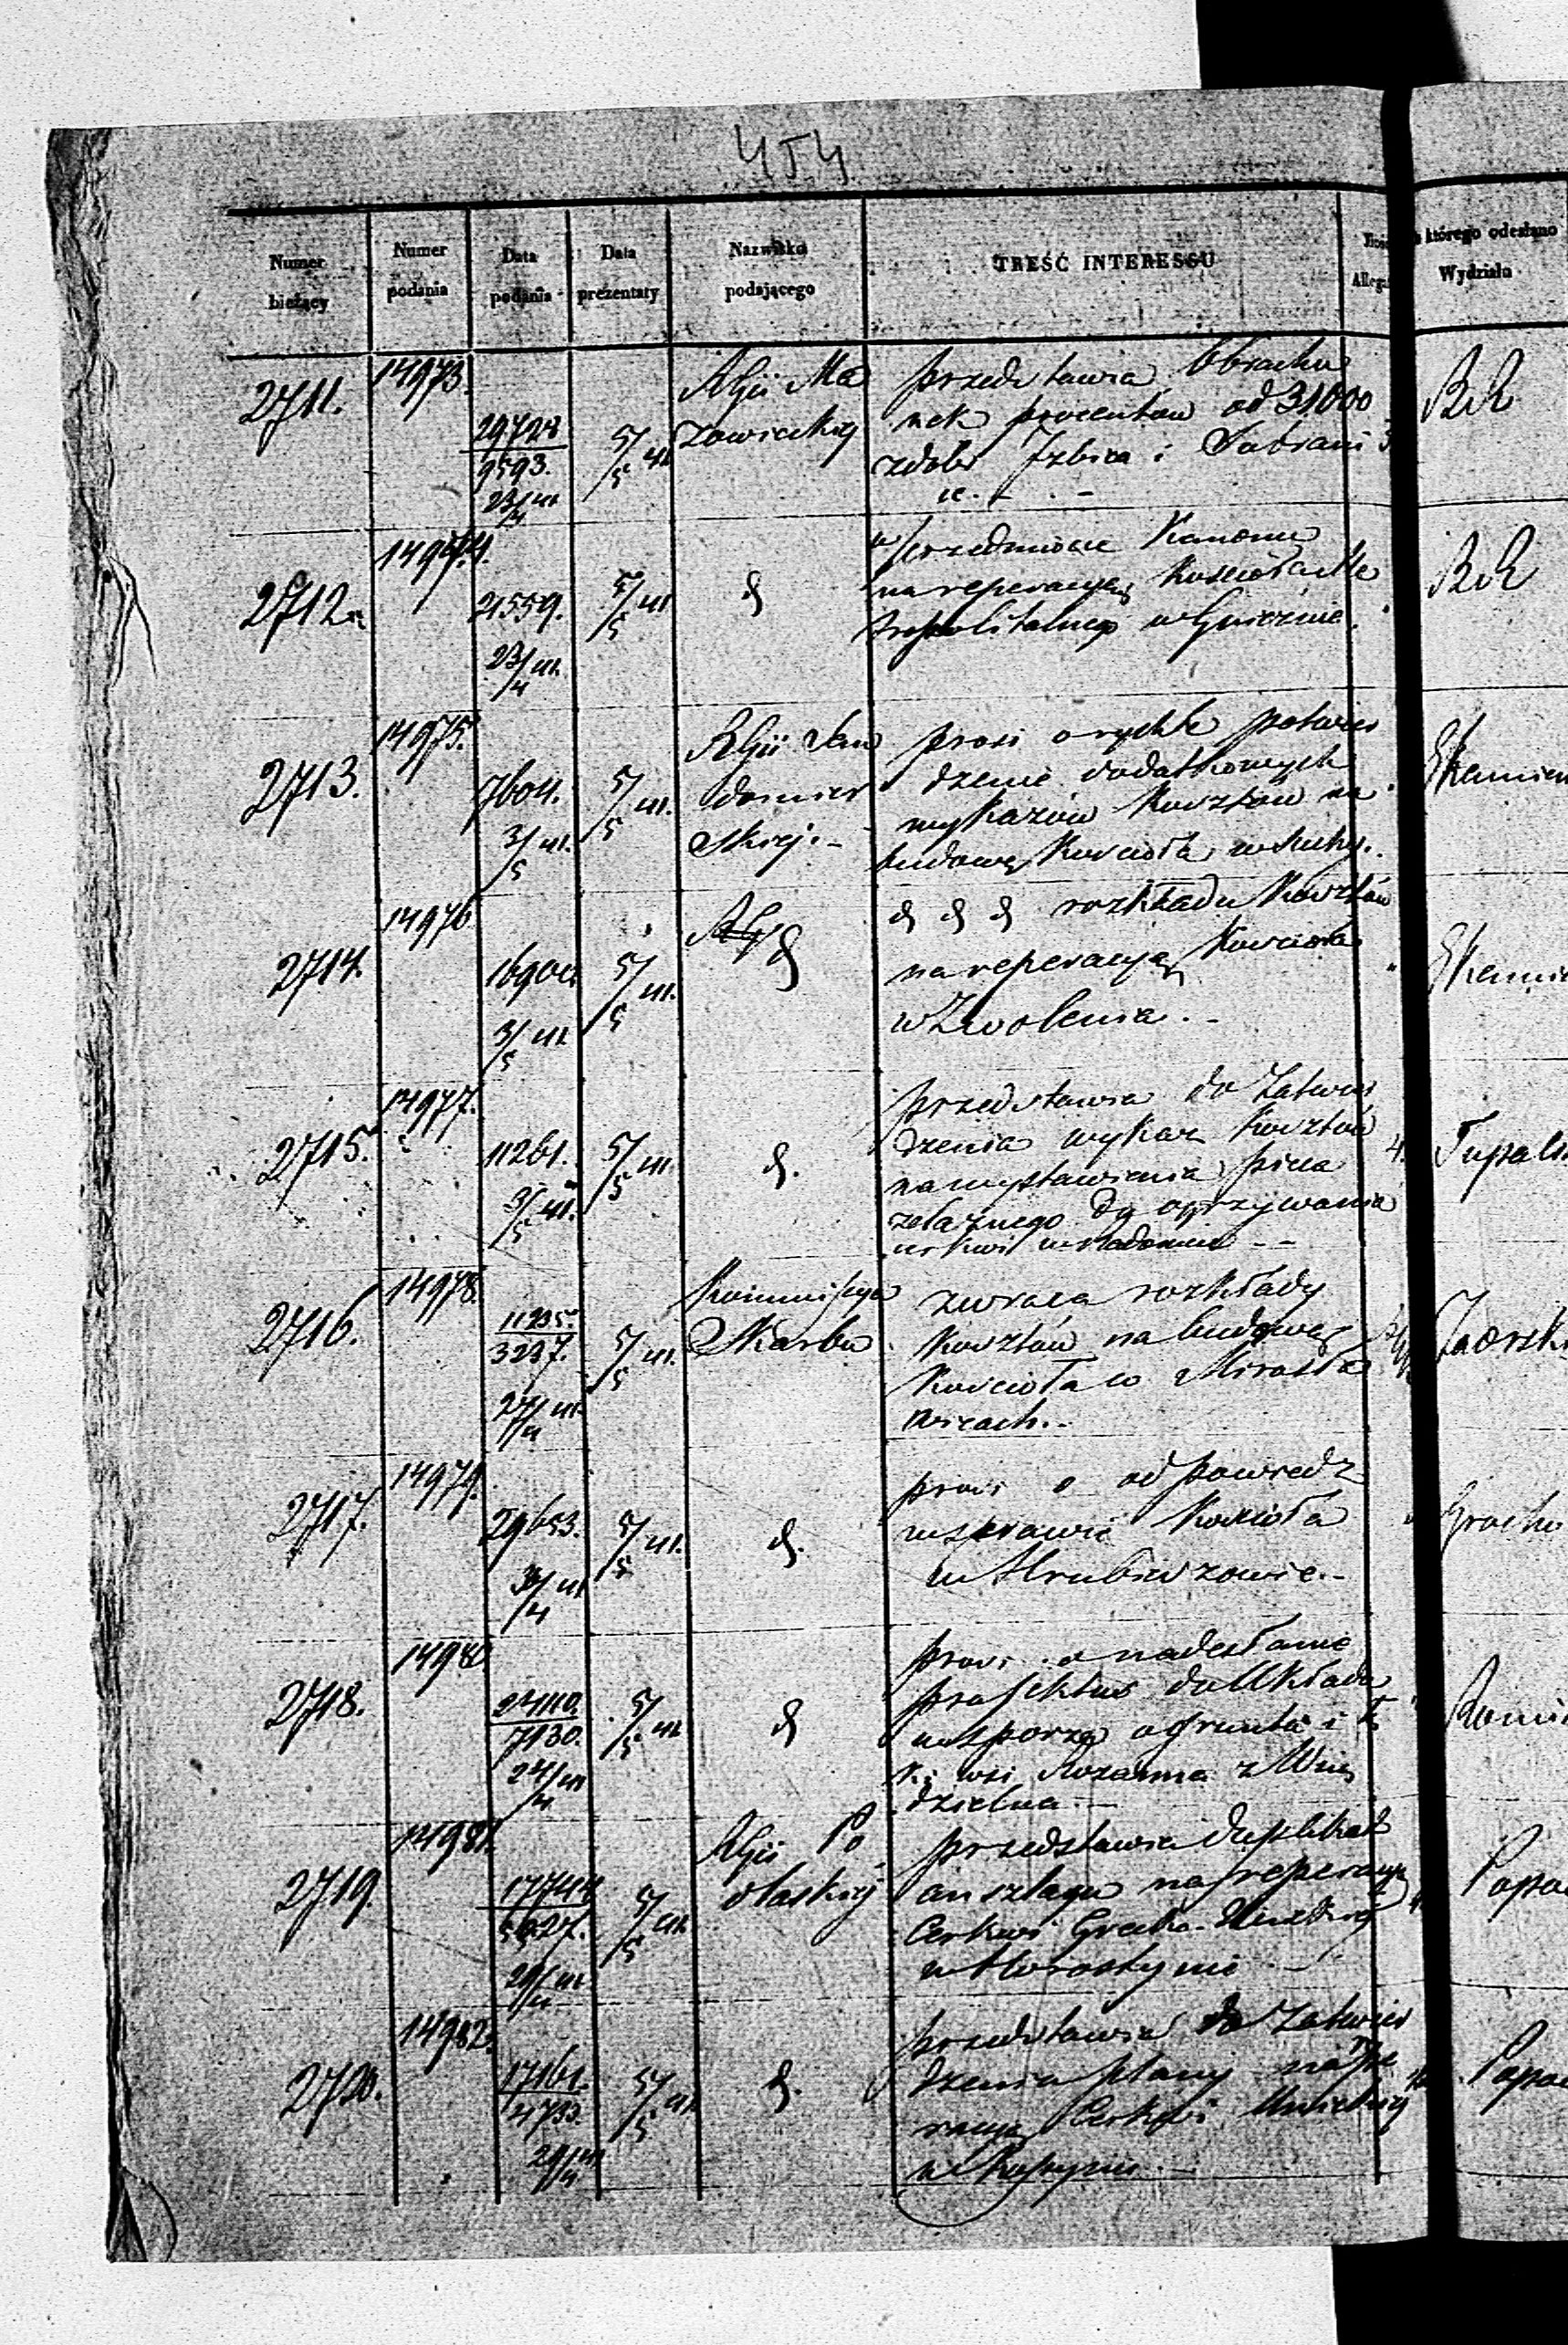 454
Numer bieżący
Numer podania
Data podania
Data prezentaty
Nazwisko podającego
TREŚĆ INTERESSU
którego odesłano
Wydziału
2711.
14973.
29728
9593.
23/4 41.
5/5 41
RGu Ma
zowieckiej
przedstawia Obrachu
nek procentów od 31000
z dóbr Izbica i
RR
2712.
14974.
21559.
23/4 41.
5/5 41
d
w przedmiocie Kanonu
na reperacyę Kościoła Me
tropolitalnego w Gnieznie.
RR
2713.
14975.
7604.
3/5 41.
5/5 41.
RGu San
domier
skiej.-
prosi o rychłe potwier
dzenie dodatkowych
wykazów Kosztów na
budowę Kościoła w Suchej.
2714.
14976
16900.
3/5 41.
5/5 41.
d
d d d rozkładu Kosztów
na reperacyę Kościoła
w Zwoleniu.-
2715.
14977.
11261.
3/5 41.
5/5 41.
d.
przedstawia do Zatwier
dzenia wykaz Kosztów
na wystawienie pieca
żelaznego do ogrzywania
cerkwi w Radomiu --
4.
2716.
14978.
11235
3237.
27/4 41.
5/5 41.
Kommissya
Skarbu
zwraca rozkłady
Kosztów na budowę
Kościoła w Mirosła
wicach.-
2717.
14979.
29653.
30/4 41
5/5 41.
d.
prosi o odpowiedz
w sprawie Kościoła
w Hrubieszowie.-
2718.
14980
24110.
7130.
24/4 41
5/5 41
d
prosi o nadesłanie
projektu do Układu
w sporze o grunta i
ki wsi Rozanna z
2719.
14981.
17744
5927.
29/4 41
5/5 41.
RGu Po
dlaskiej
przedstawia duplikat
anszlagu na reperacyę
Cerkwi Grecko-Unickiej
w Horostycie
2720.
14982.
17161.
4733.
29/4 41
5/5 41.
d.
przedstawia do Zatwier
dzenia plany na repe
racyę Cerkwi Unickiej